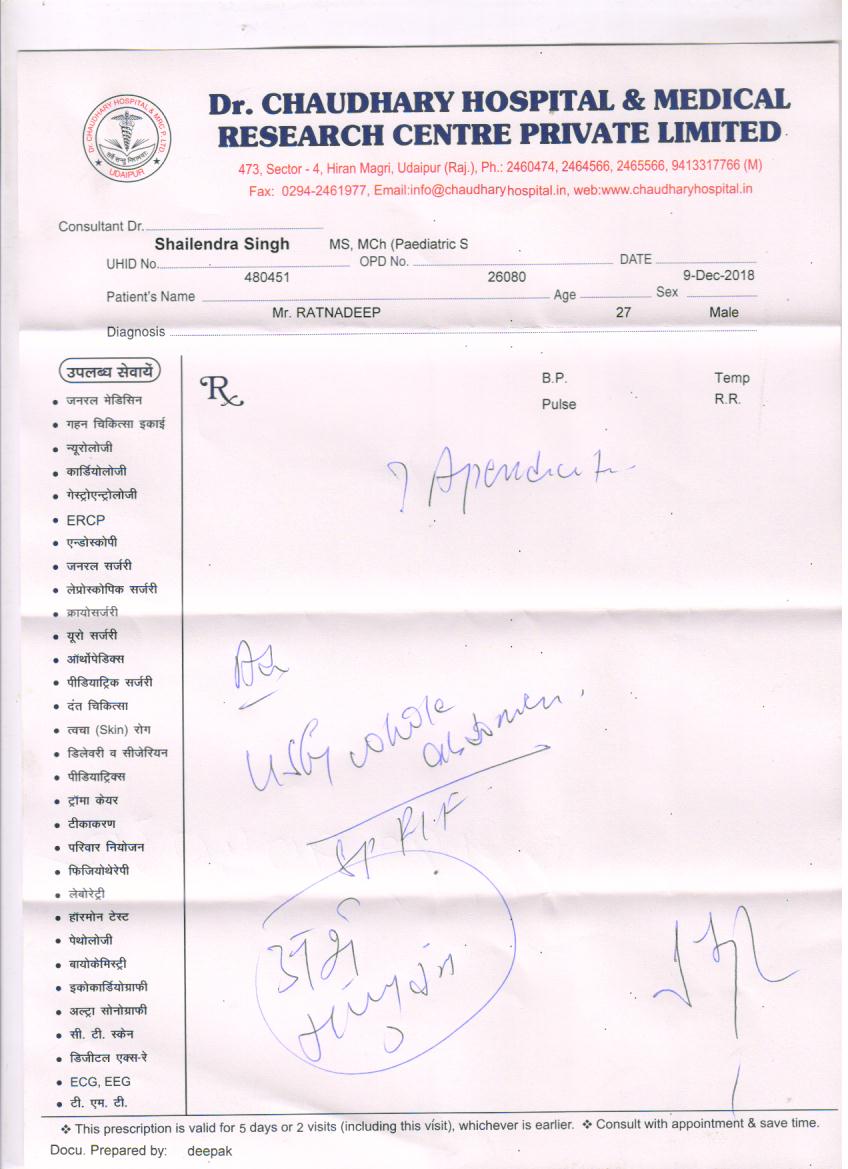 Dr. CHAUDHARY HOSPITAL & MRC P. LTD.
सर्वे सन्तु निरामयाः
UDAIPUR
Dr. CHAUDHARY HOSPITAL & MEDICAL
RESEARCH CENTRE PRIVATE LIMITED
473, Sector - 4, Hiran Magri, Udaipur (Raj.), Ph.: 2460474, 2464566, 2465566, 9413317766 (M)
Fax: 0294-2461977, Email:info@chaudharyhospital.in, web:www.chaudharyhospital.in
Consultant Dr.
Shailendra Singh MS, MCh (Paediatric S
UHID No. OPD No. DATE
480451 26080 9-Dec-2018
Patient's Name Age Sex
Mr. RATNADEEP 27 Male
Diagnosis
उपलब्ध सेवायें
Rx B.P. Temp
Pulse R.R.
• जनरल मेडिसिन
• गहन चिकित्सा इकाई
• न्यूरोलोजी
• कार्डियोलोजी
• गेस्ट्रोएन्ट्रोलोजी
• ERCP
• एन्डोस्कोपी
• जनरल सर्जरी
• लेप्रोस्कोपिक सर्जरी
• क्रायोसर्जरी
• यूरो सर्जरी
• ऑर्थोपेडिक्स
• पीडियाट्रिक सर्जरी
• दंत चिकित्सा
• त्वचा (Skin) रोग
• डिलेवरी व सीजेरियन
• पीडियाट्रिक्स
• ट्रॉमा केयर
• टीकाकरण
• परिवार नियोजन
• फिजियोथेरेपी
• लेबोरेट्री
• हॉरमोन टेस्ट
• पेथोलोजी
• बायोकेमिस्ट्री
• इकोकार्डियोग्राफी
• अल्ट्रा सोनोग्राफी
• सी. टी. स्केन
• डिजीटल एक्स-रे
• ECG, EEG
• टी. एम. टी.
? Apendicit
Adv
USG whole
abdomen.
SP RIF
❖ This prescription is valid for 5 days or 2 visits (including this visit), whichever is earlier. ❖ Consult with appointment & save time.
Docu. Prepared by: deepak